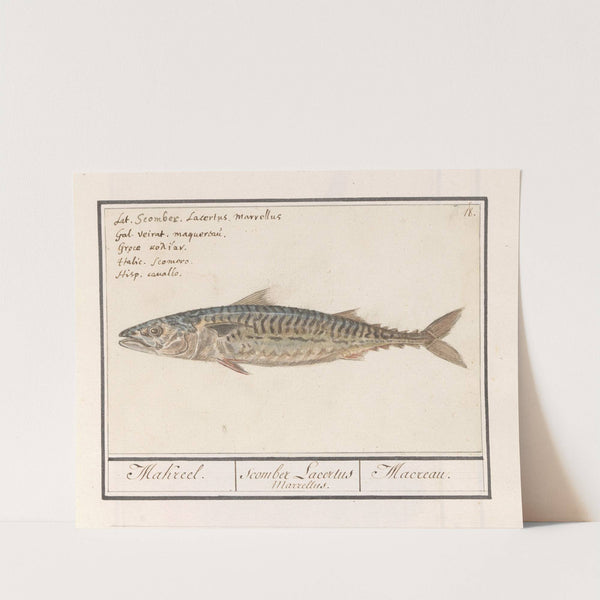 Lat. Scomber. Lacertus. Marrellus
18.
Gal. Veirat. maquereau.
Græce κολίαν.
Italic. Scomoro.
Hisp. cavallo.
Makreel.
Scomber Lacertus
Marrellus.
Macreau.